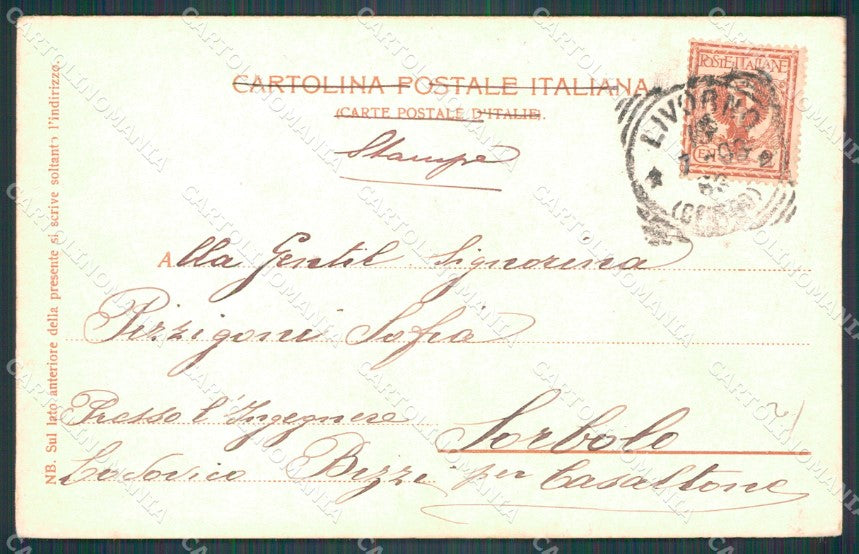 CARTOLINA POSTALE ITALIANA
(CARTE POSTALE D'ITALIE).
Stampe
POSTE ITALIANE
LIVORNO
Alla Gentil Signorina
Pizzigoni Sofia
Presso l'Ingegnere
Lodovico Bizzi
Sorbolo
per Casaltone
NB. Sul lato anteriore della presente si scrive soltanto l'indirizzo.
CARTOLINOMANIA